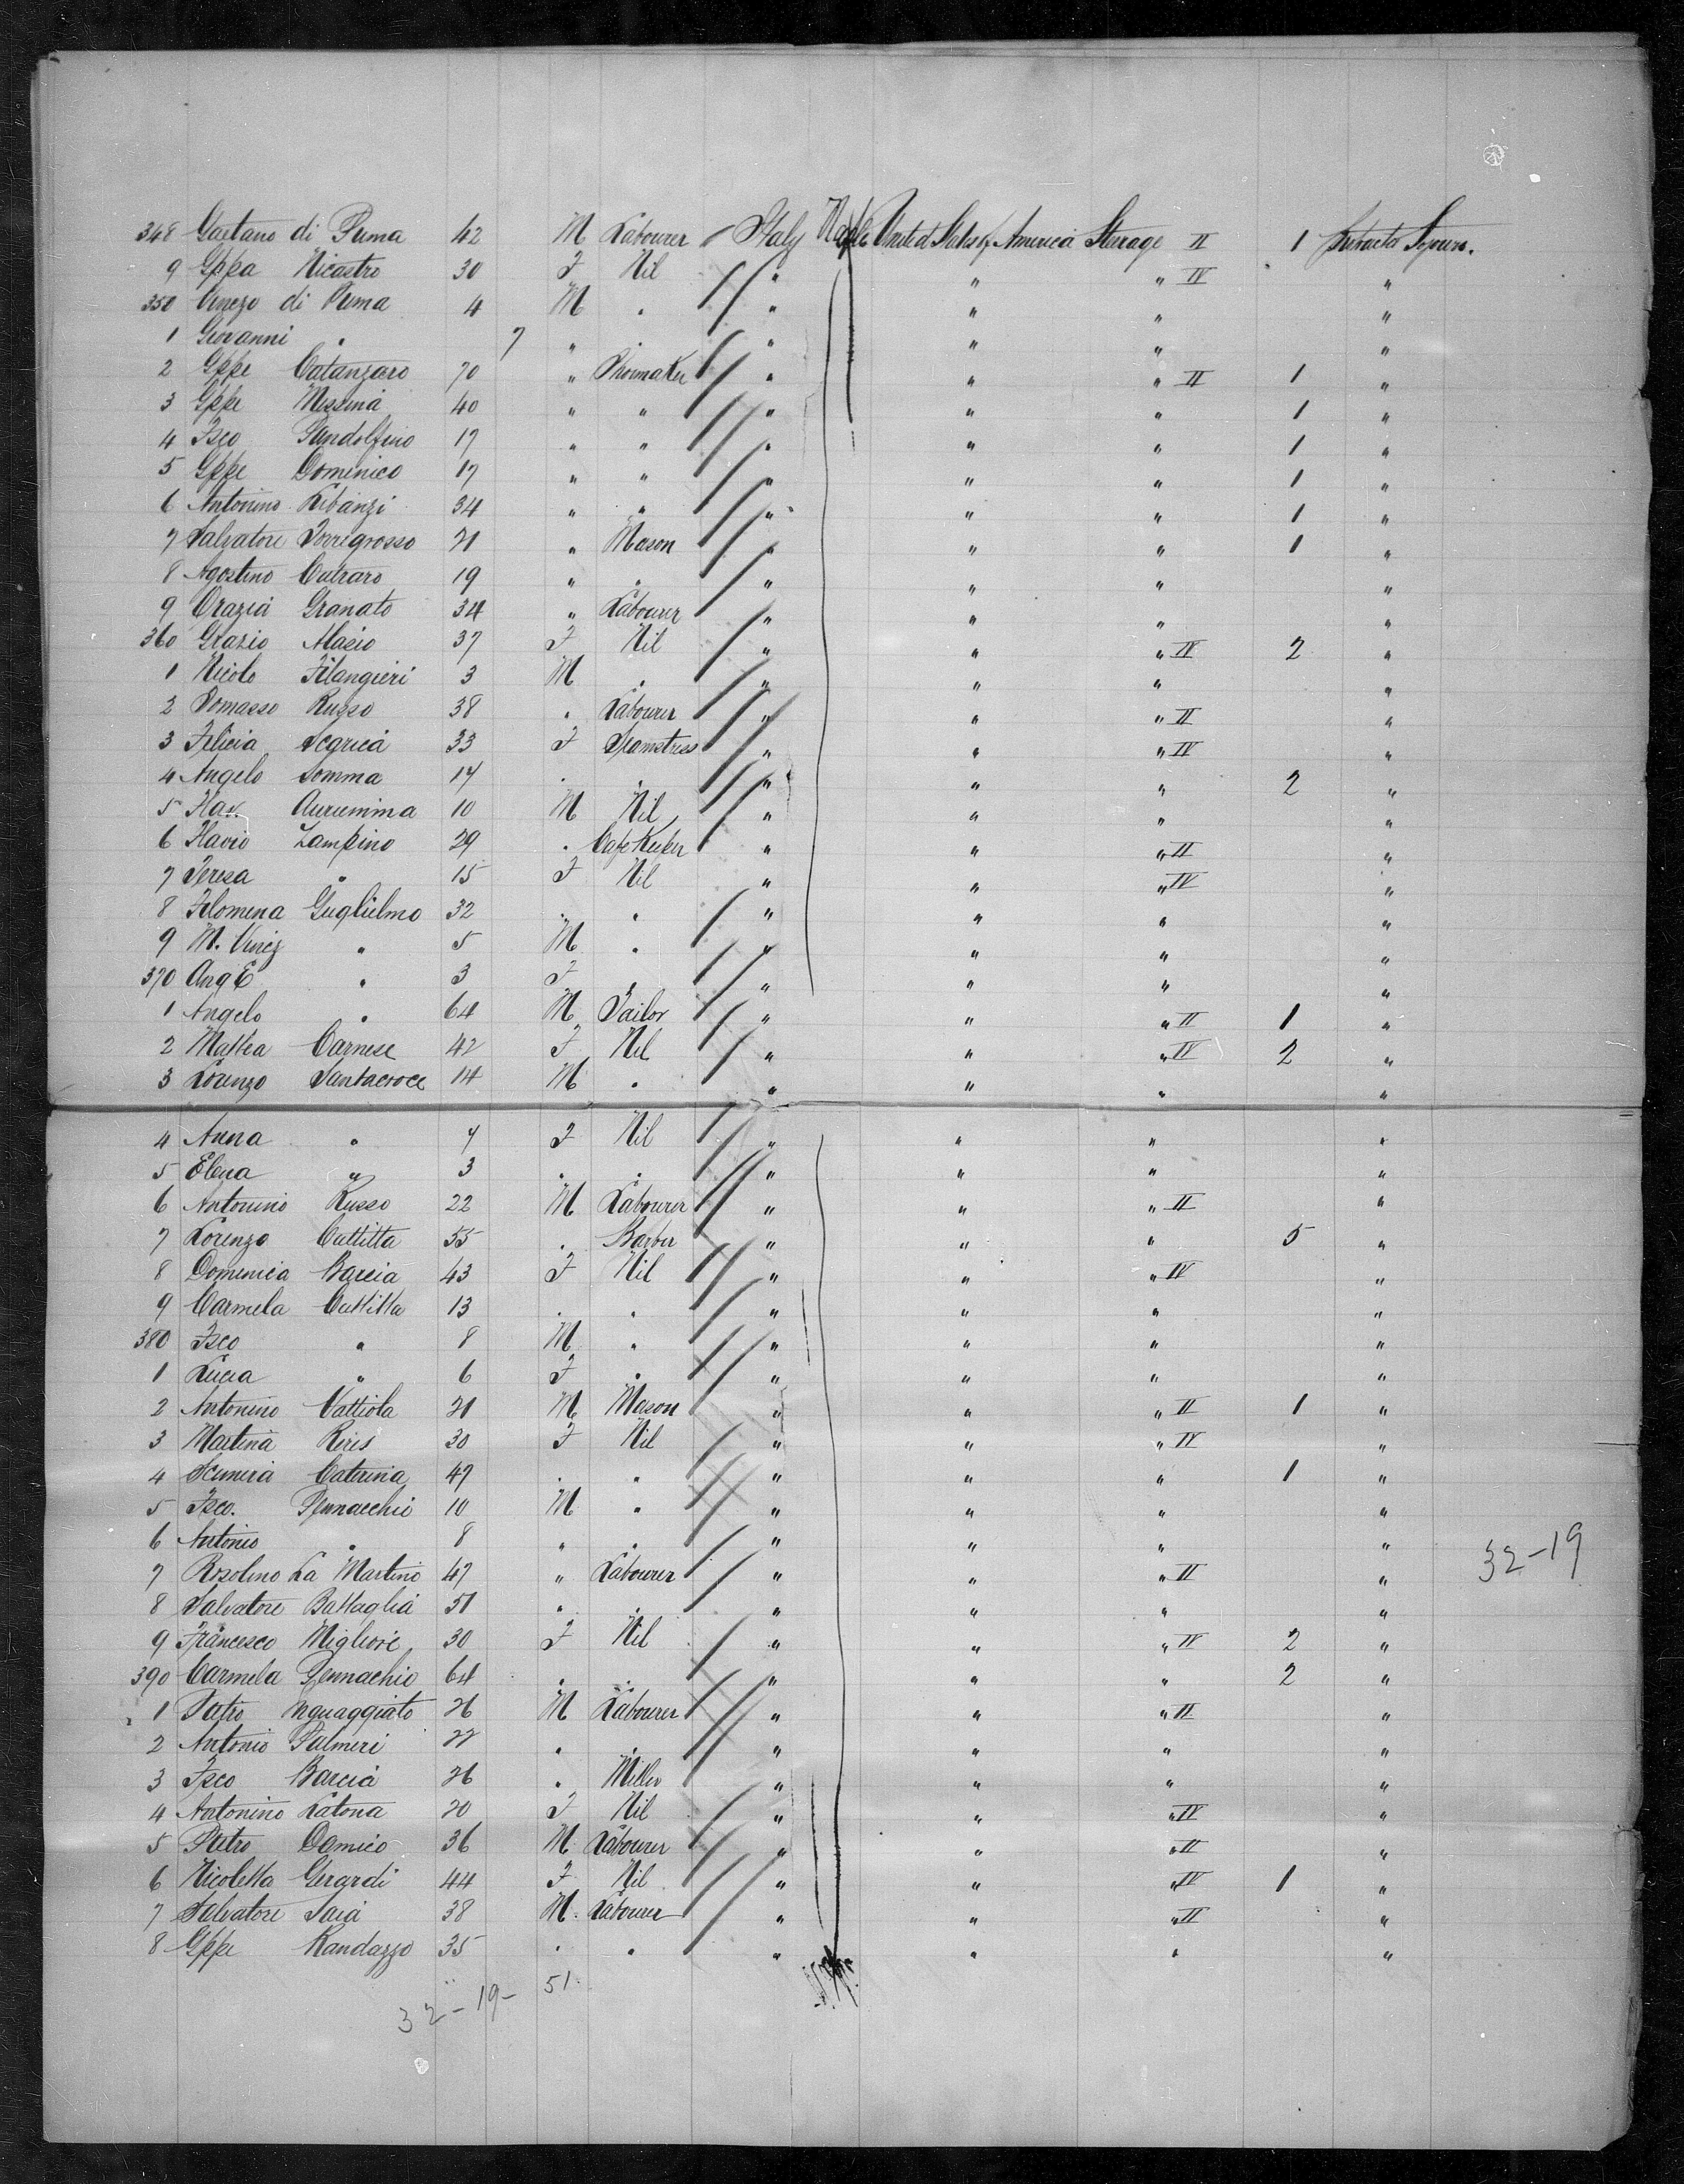 348 Gaetano di Puma 42 M Labourer Italy Naples United States of America Steerage II 1 Protracted Sojourn.
9 Gppa Nicastro 30 F Nil " " " IV "
350 Vinczo di Puma 4 M " " " " "
1 Giovanni " 7 " " " " " "
2 Gppe Catanzaro 70 " Shoemaker " " " II 1 "
3 Gppe Messina 40 " " " " " 1 "
4 Fsco Pandolfino 17 " " " " " 1 "
5 Gppe Domenico 17 " " " " " 1 "
6 Antonino Libanzi 34 " " " " " 1 "
7 Salvatore Torregrosso 21 " Mason " " " 1 "
8 Agostino Cutraro 19 " " " " " "
9 Orazia Granato 34 " Labourer " " " "
360 Grazio Alasio 37 F Nil " " " IV 2 "
1 Nicolo Filangieri 3 M " " " " "
2 Tomasso Russo 38 " Labourer " " " II "
3 Felicia Scarica 33 F Seamstress " " " IV "
4 Angelo Somma 14 " " " " " 2 "
5 Auriemma 10 M Nil " " " "
6 Flavio Zampino 29 " Cafe Keeper " " " II "
7 Teresa " 15 F Nil " " " IV "
8 Filomena Guglielmo 32 " " " " " "
9 M. Vincz " 5 M " " " " "
370 Ang E " 3 F " " " " "
1 Angelo " 64 M Tailor " " " II 1 "
2 Mattea Carnese 42 F Nil " " " IV 2 "
3 Lorenzo Santacroce 14 M " " " " "
4 Anna " 7 F Nil " " " "
5 Elena " 3 " " " " " "
6 Antonino Russo 22 M Labourer " " " II "
7 Lorenzo Cuttitta 55 " Barber " " " 5 "
8 Domenica Barcia 43 F Nil " " " IV "
9 Carmela Cuttitta 13 " " " " " "
380 Fsco " 8 M " " " " "
1 Lucia " 6 F " " " " "
2 Antonino Vattiola 21 M Mason " " " II 1 "
3 Martina Reres 30 F Nil " " " IV "
4 Scimera Caterina 47 " " " " " 1 "
5 Fsco. Pennacchio 10 M " " " " "
6 Antonio " 8 " " " " " "
7 Rosolino La Martino 47 " Labourer " " " II " 32-19
8 Salvatore Battaglia 51 " " " " " "
9 Francesco Migliore 30 F Nil " " " IV 2 "
390 Carmela Pennachio 64 " " " " " 2 "
1 Pietro Inguaggiato 26 M Labourer " " " II "
2 Antonio Palmeri 27 " " " " " "
3 Fsco Barcia 26 " Miller " " " "
4 Antonino Latona 20 F Nil " " " IV "
5 Pietro Damico 36 M Labourer " " " II "
6 Nicoletta Gerardi 44 F Nil " " " IV 1 "
7 Salvatore Saia 38 M. Labourer " " " II "
8 Gppe Randazzo 35 " " " " " "
32-19- 51